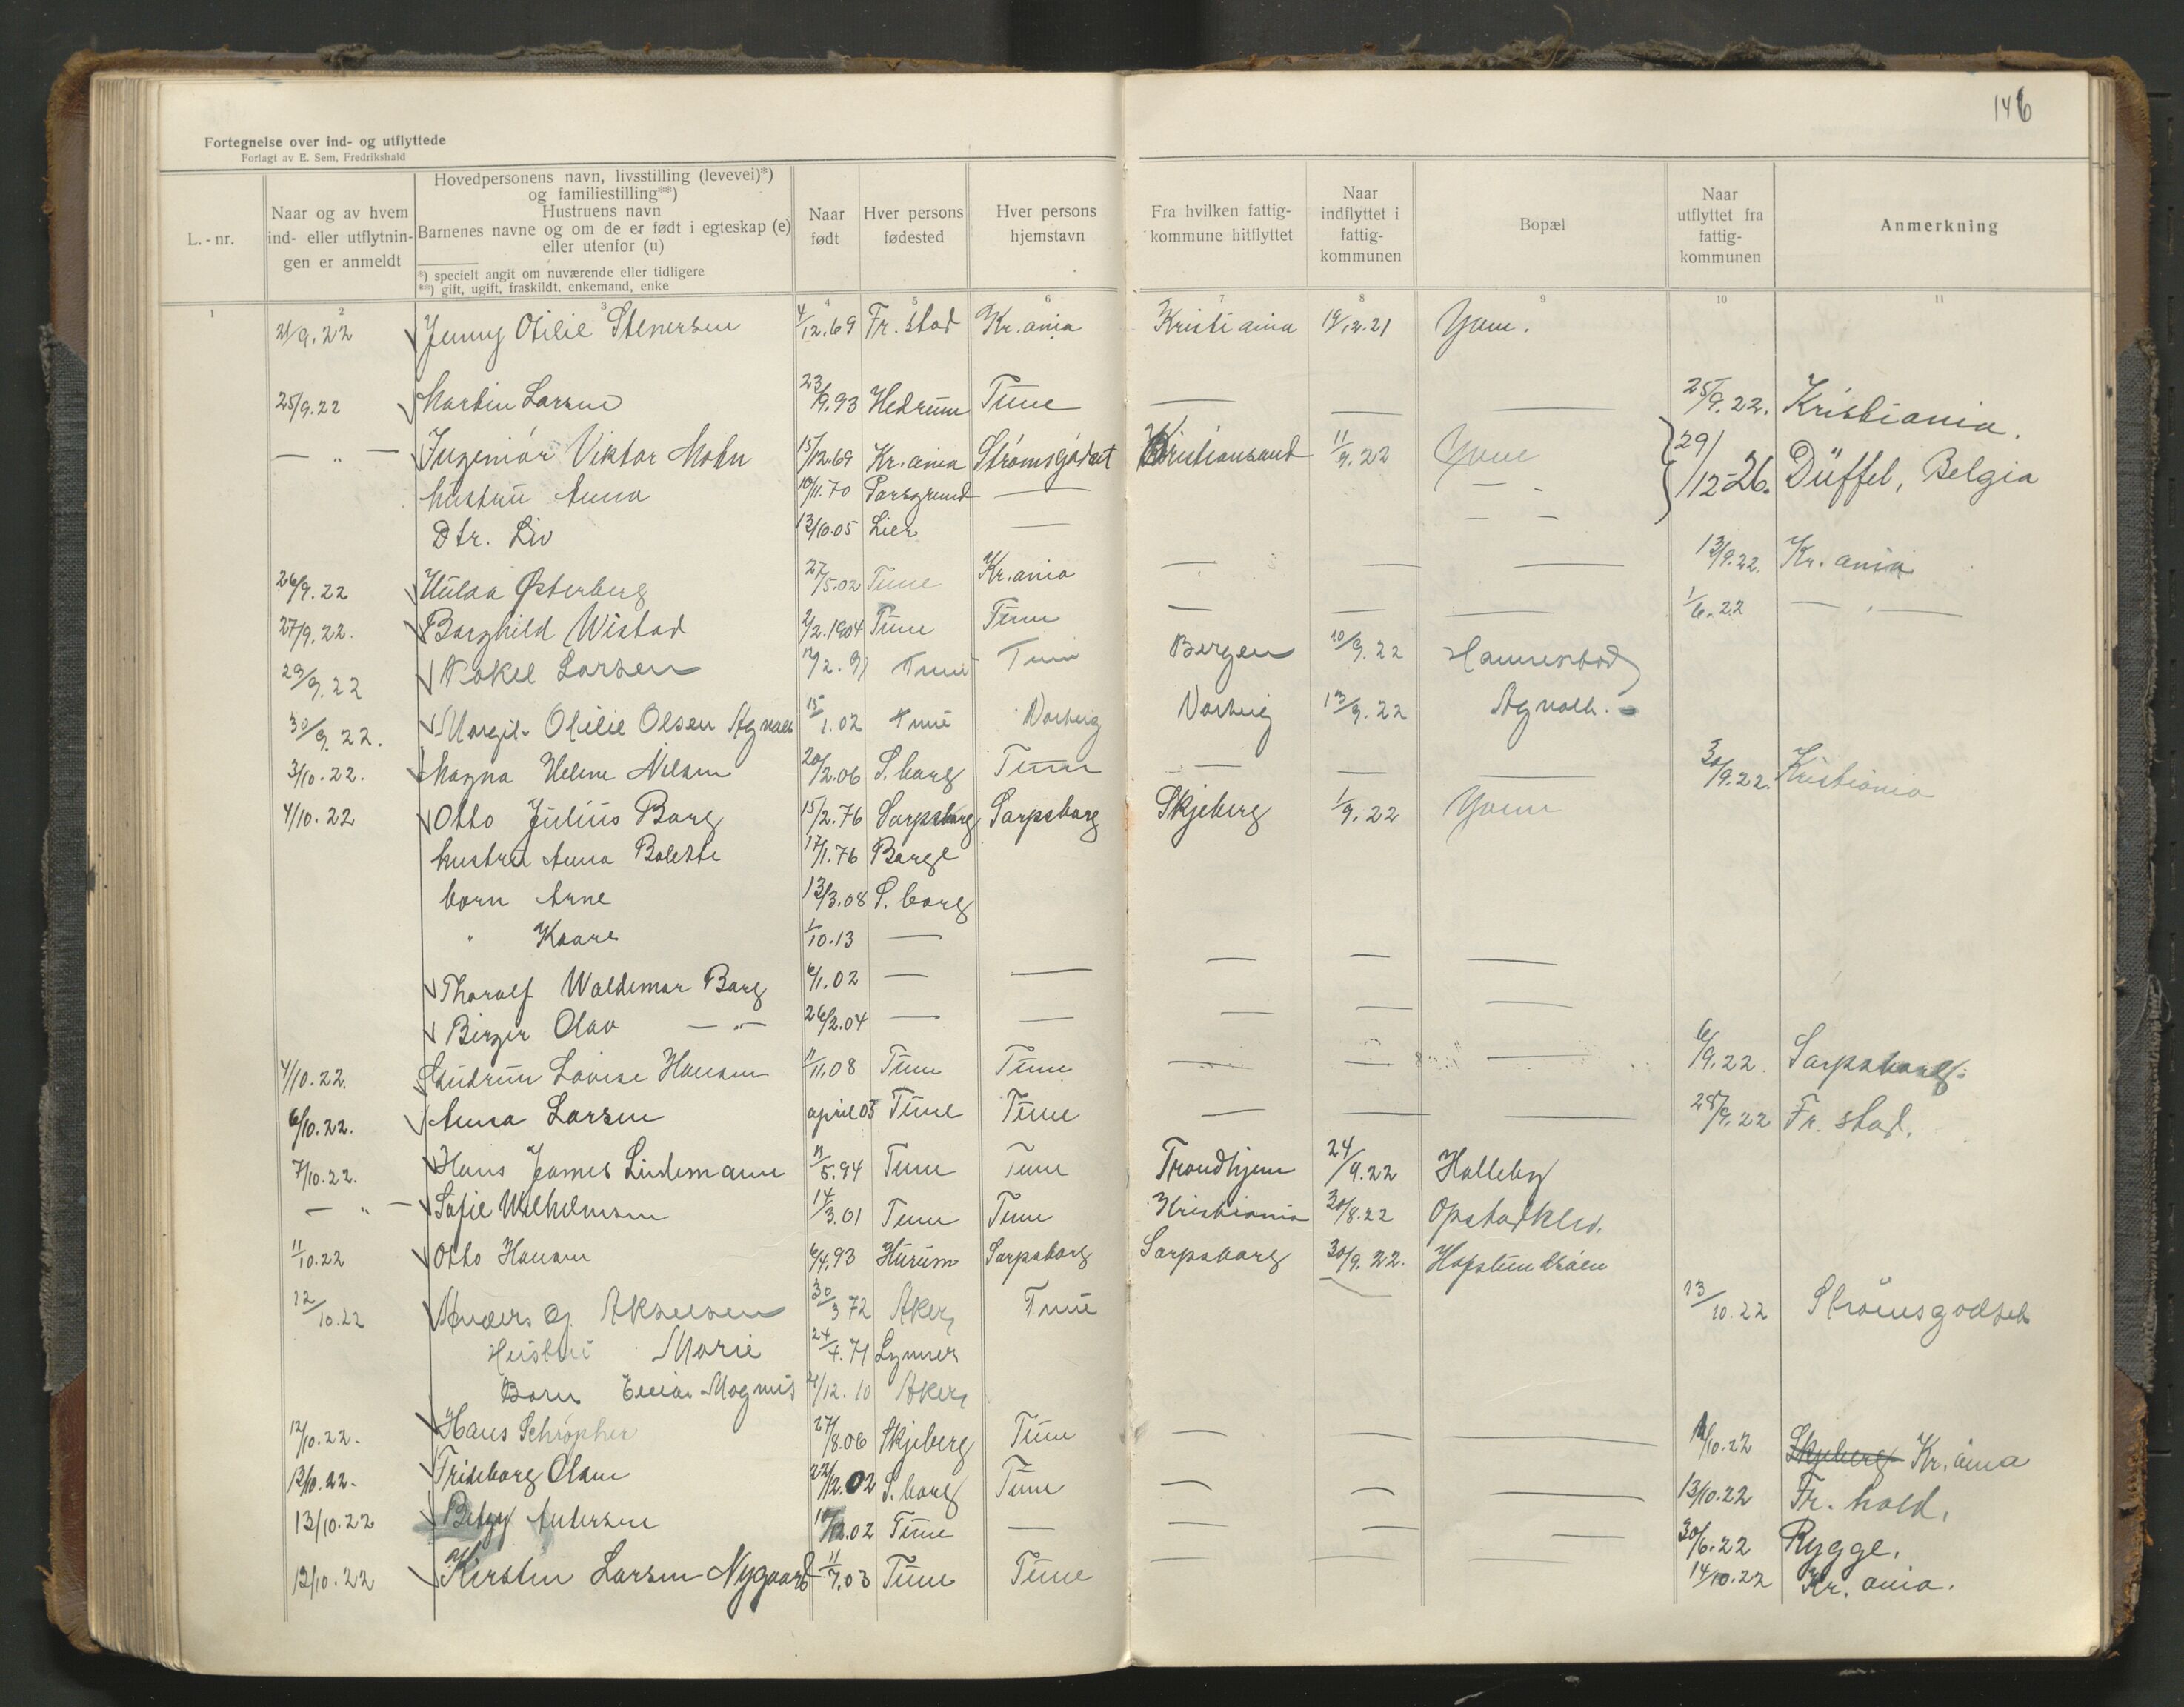 146
Fortegnelse over ind- og utflyttede
Forlagt av E. Sem, Fredrikshald
L.-nr.
Naar og av hvem ind- eller utflytningen er anmeldt
Hovedpersonens navn, livsstilling (levevei)*) og familiestilling**)
Hustruens navn
Barnenes navne og om de er født i egteskap (e) eller utenfor (u)
*) specielt angit om nuværende eller tidligere
**) gift, ugift, fraskildt, enkemand, enke
Naar født
Hver persons fødested
Hver persons hjemstavn
Fra hvilken fattigkommune hitflyttet
Naar indflyttet i fattigkommunen
Bopæl
Naar utflyttet fra fattigkommunen
Anmerkning
1 2 3 4 5 6 7 8 9 10 11
21/9.22 Jenny Otilie Stenersen 4/12.69 Fr.stad Kr.ania Kristiania 19/12.21
25/9.22 Martin Larsen 23/9.93 Hedrum Tune — — — 25/9.22. Kristiania.
— " — Ingeniör Viktor Mohn 15/12.69 Kr.ania Strömsgodset Kristiansand 11/9.22 29/12-26. Düffel, Belgia
hustru Anna 10/11.70 Porsgrund —
Dtr. Liv 13/10.05 Lier —
26/9.22 Hulda Østerberg 27/5.02 Tune Kr.ania — — — 13/9.22. Kr.ania
27/9.22. Borghild Wistad 2/2.1904 Tune Tune — — — 1/6.22 — " —
29/9.22 Larsen Tune Tune Bergen 10/9.22 Hannestad
30/9.22. Margit Otilie Olsen Agnalt 15/1.02 Tune Varteig Varteig 13/9.22 Agnalt.
3/10.22. Magna Helene Nilsen 20/2.06 S.borg Tune — — — 30/9.22. Kristiania
4/10.22 Otto Julius Borg 15/2.76 Sarpsborg Sarpsborg Skjeberg 1/9.22
hustru Anna Bolette 17/1.76 Borge
børn Arne 13/3.08 S.borg
" Kaare 1/10.13 —
Thoralf Waldemar Borg 6/1.02 — — — — —
Birger Olav — " — 26/2.04 — — — — —
4/10.22. Gudrun Lovise Hansen 11/11.08 Tune Tune — — — 6/9.22. Sarpsborg.
6/10.22. Anna Larsen april 03 Tune Tune — — — 28/9.22 Fr.stad.
7/10.22. Hans James Lindemann 11/5.94 Tune Tune Trondhjem 24/9.22 Halleby
— " — Sofie Wilhelmsen 14/3.01 Tune Tune Kristiania 30/8.22 Opstadkleiv.
11/10.22 Otto Hansen 6/4.93 Hurum Sarpsborg Sarpsborg 30/9.22. Hafslundsöen
12/10.22 Anders Akselsen 30/3 72 Aker Tune 13/10.22 Strömsgodset
Hustru Marie 24/4.71 Lunner
Barn Einar Magnus 21/12.10 Aker
12/10.22. Hans Schröpher 27/8.06 Skjeberg Tune — — — 12/10.22 Skjeberg Kr.ania
13/10.22. Frideborg Olsen 22/12.02 S.borg Tune — — — 13/10.22 Fr.hald.
13/10.22 Betzy Andersen 10/12.02 Tune — — — — 30/6.22 Rygge.
13/10.22 Kirsten Larsen Nygaard 11/7.03 Tune Tune — — — 14/10.22 Kr.ania.